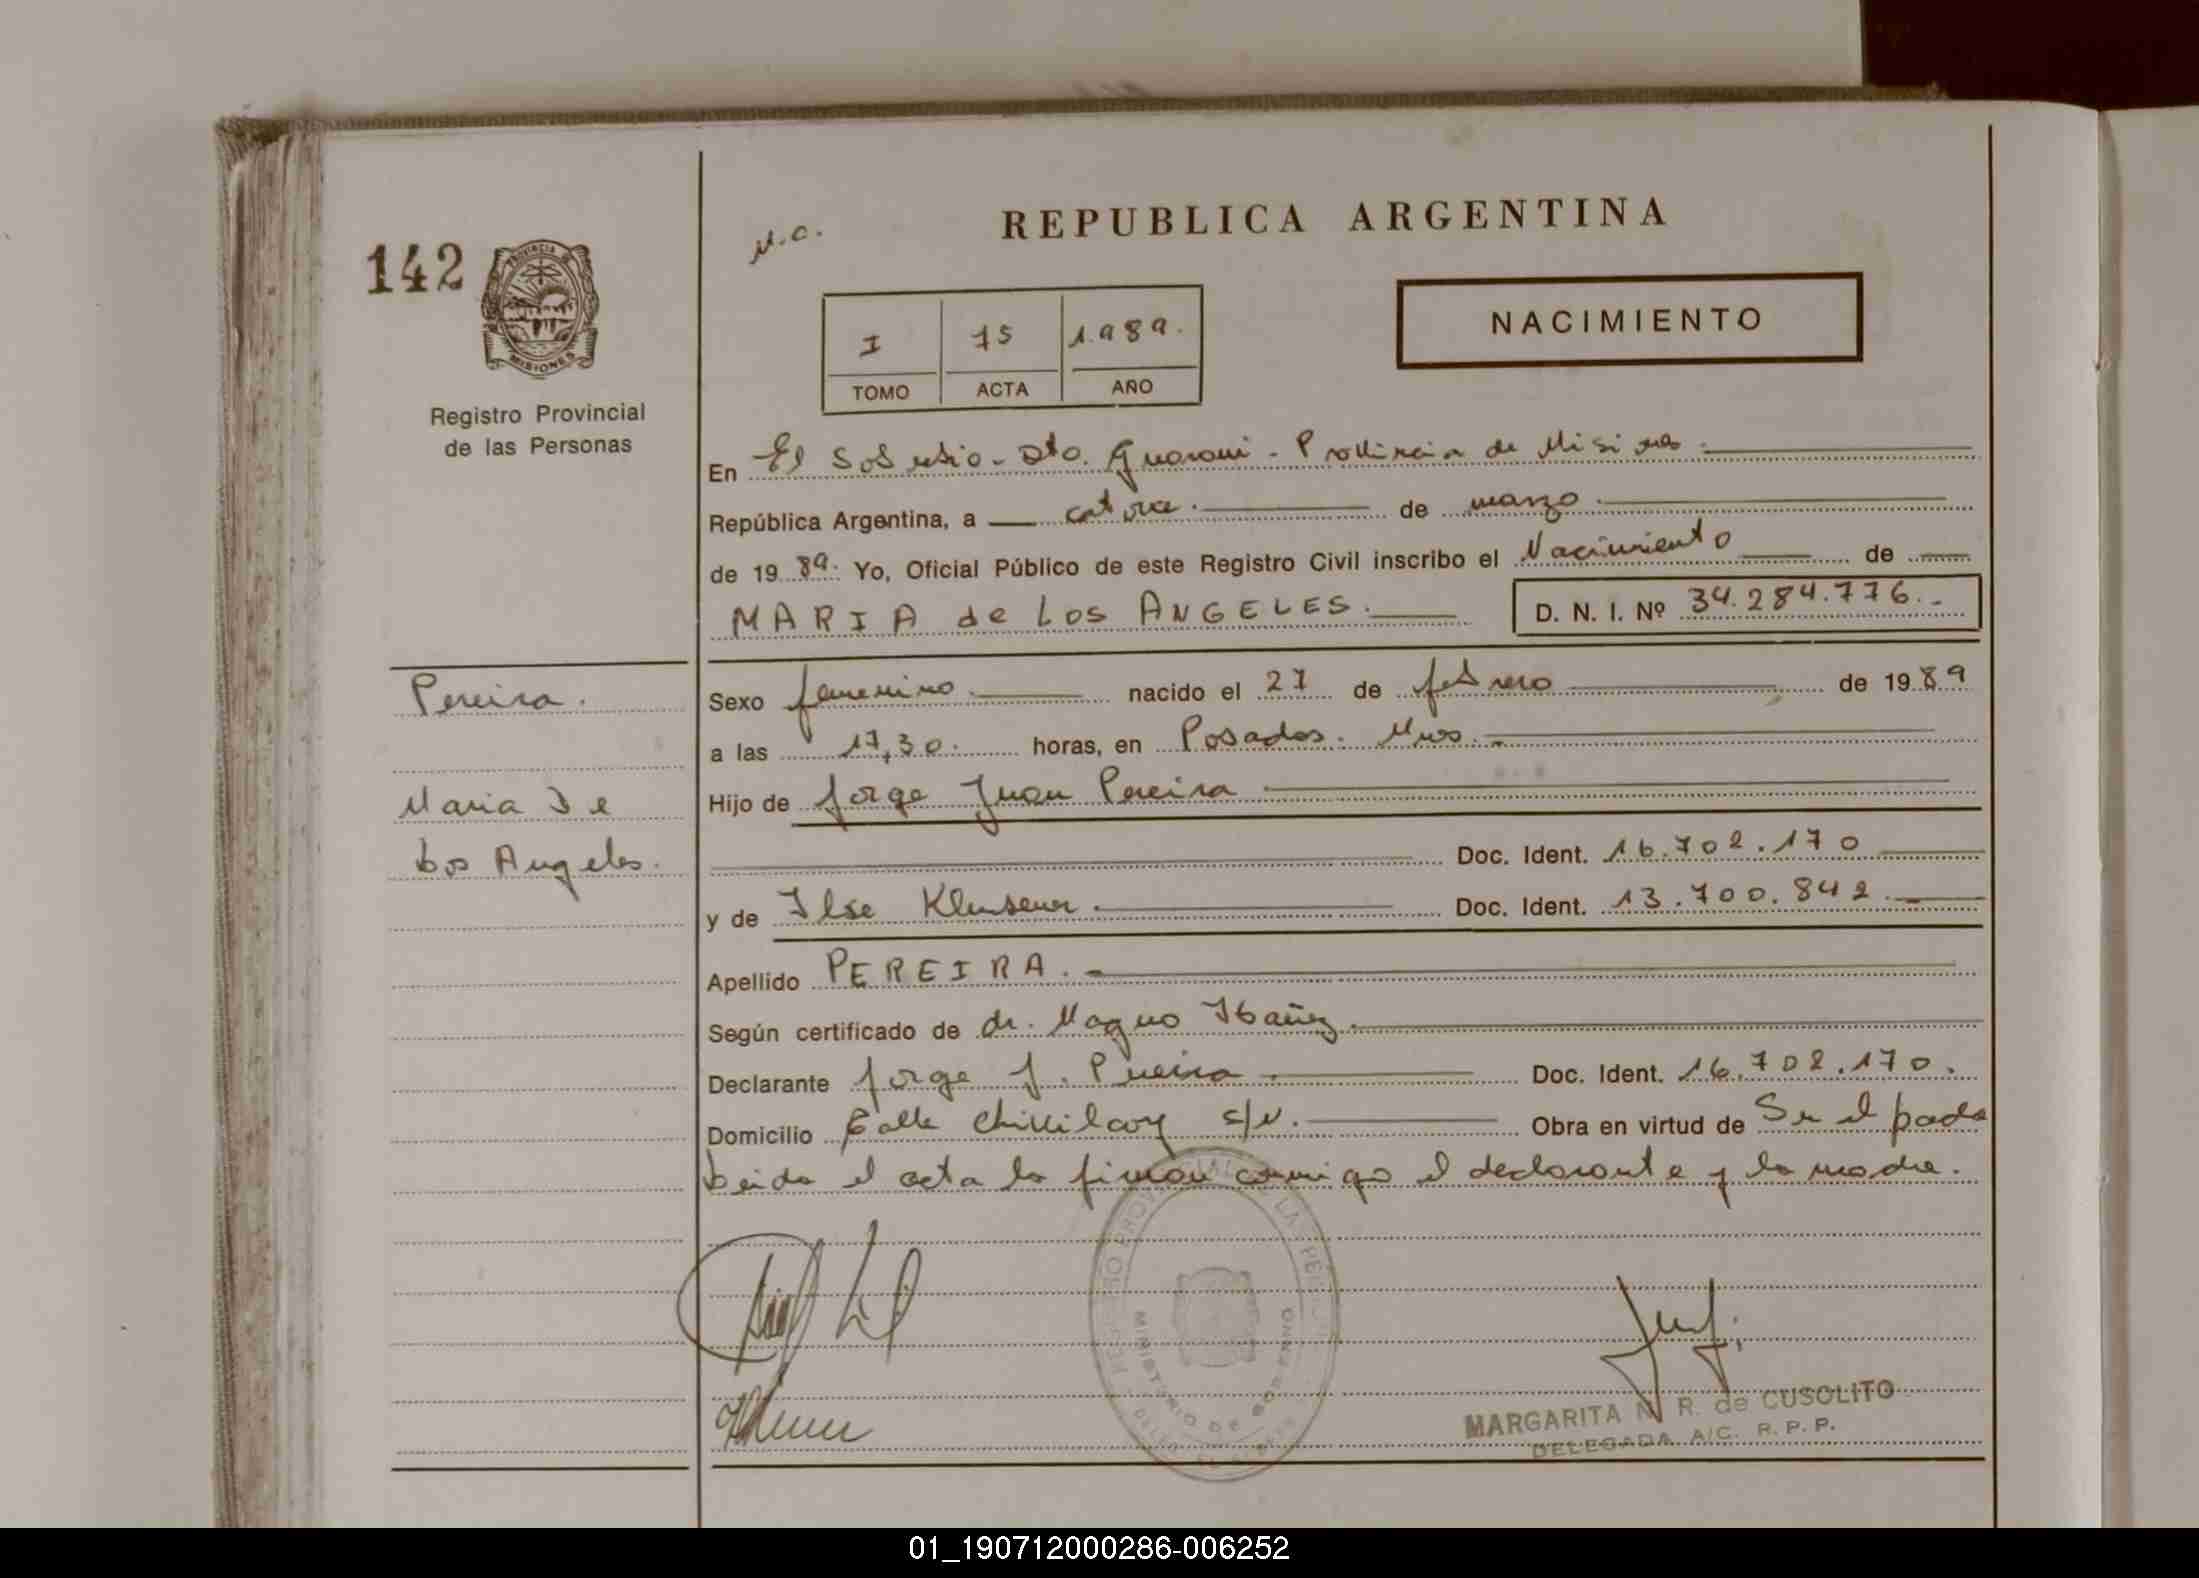 REPUBLICA ARGENTINA
142
PROVINCIA DE
MISIONES
Registro Provincial
de las Personas
NACIMIENTO
I 75 1.989.
TOMO ACTA AÑO
En El Soberbio - Dto. Guaraní - Provincia de Misiones.
República Argentina, a catorce. de marzo.
de 19 89. Yo, Oficial Público de este Registro Civil inscribo el Nacimiento de
MARIA de Los ANGELES. D. N. I. Nº 34.284.776.-
Pereira.
Maria De
Los Angeles.
Sexo femenino. nacido el 27 de febrero de 19 89
a las 17,30. horas, en Posadas. Mnes.
Hijo de Jorge Juan Pereira
Doc. Ident. 16.702.170
y de Ilse Doc. Ident. 13.700.842.
Apellido PEREIRA.
Según certificado de dr. Magno Ibañez.
Declarante Jorge J. Pereira. Doc. Ident. 16.702.170.
Domicilio Calle Chivilcoy s/n. Obra en virtud de Ser el padre
Leida el acta la firman conmigo el declarante y la madre.
MINISTERIO DE GOBIERNO
MARGARITA N. R. de CUSOLITO
DELEGADA A/C. R. P. P.
01_190712000286-006252